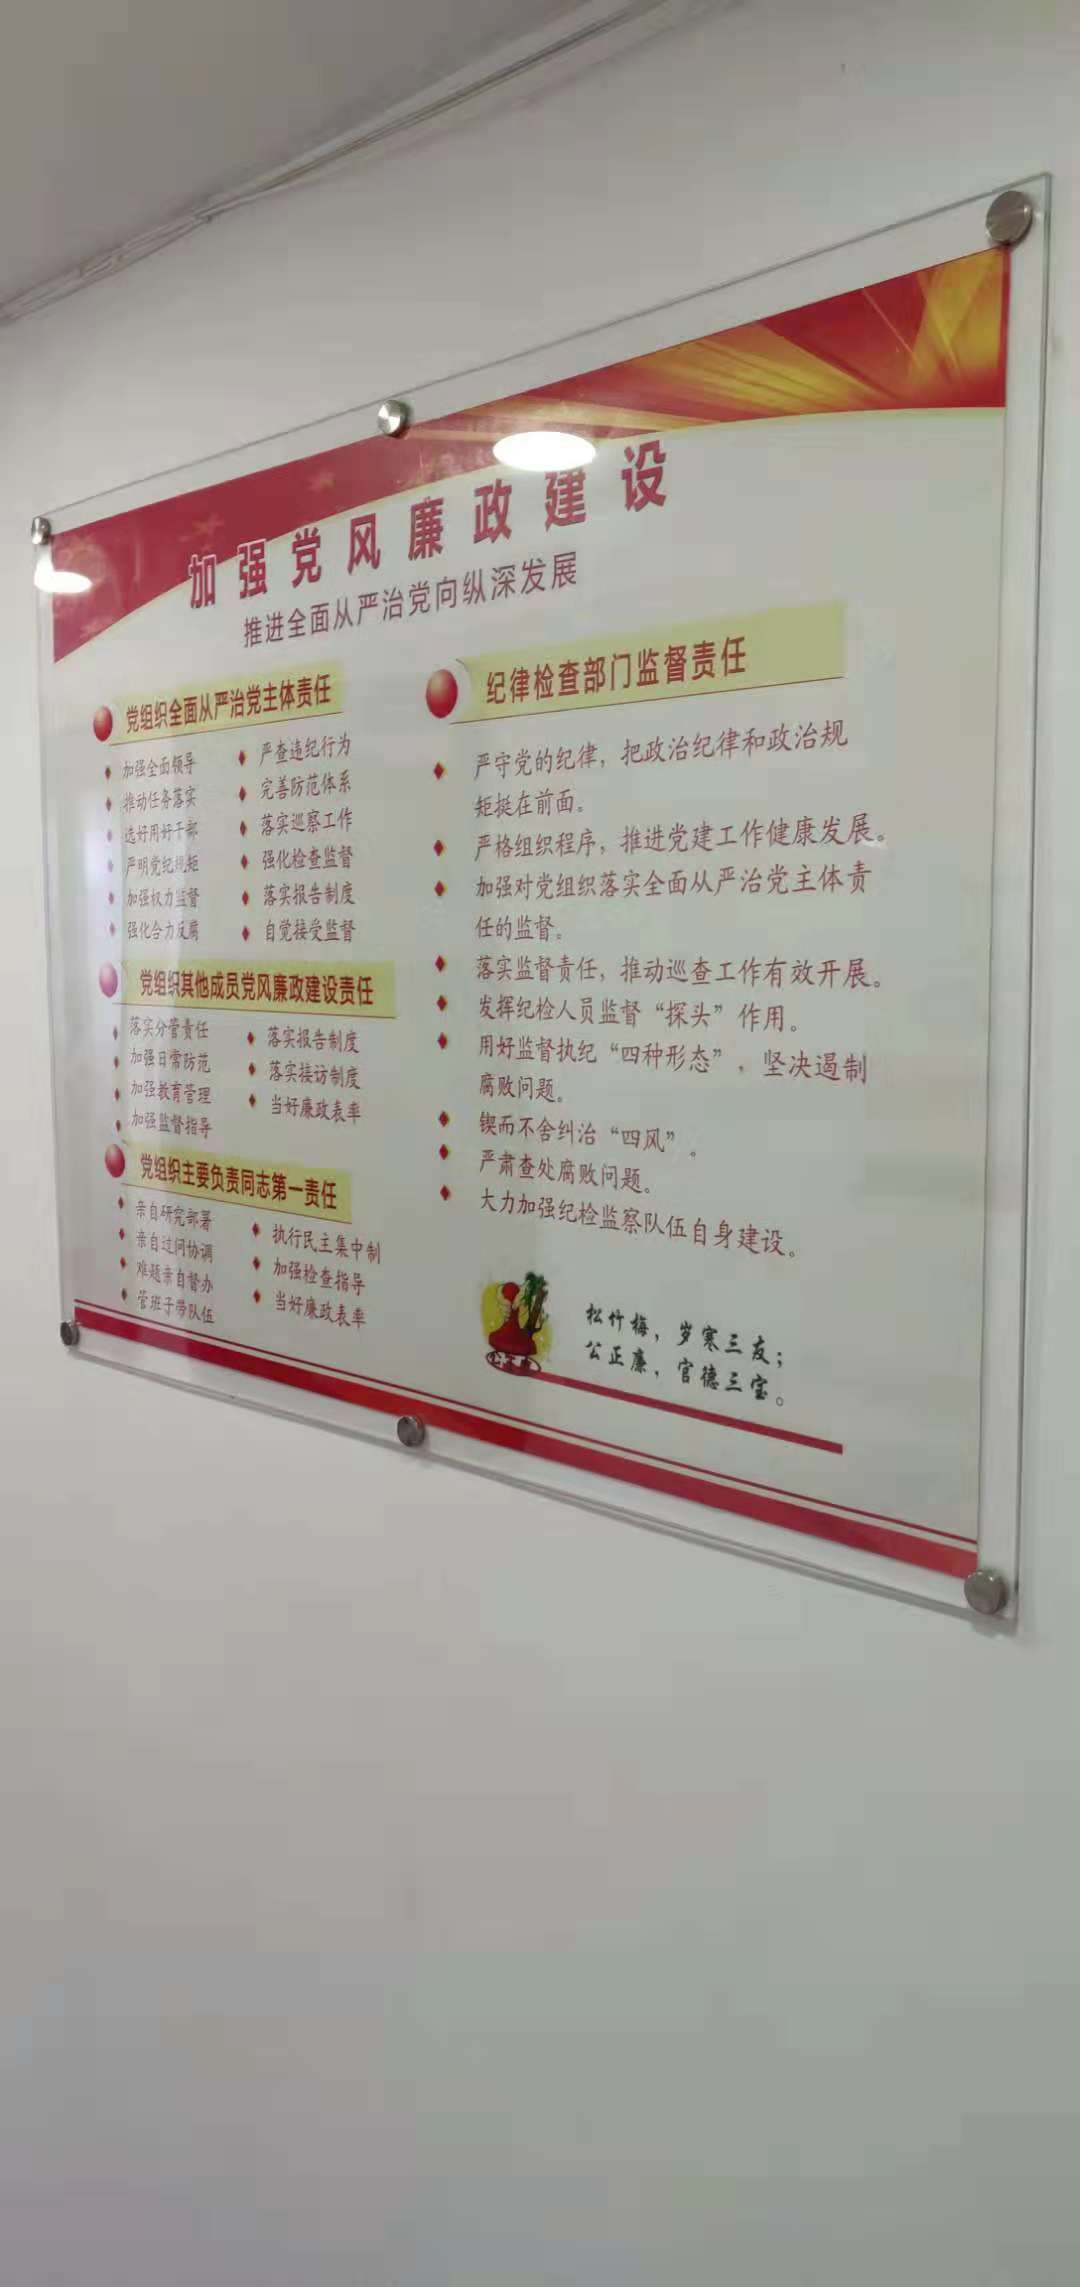 加强党风廉政建设
推进全面从严治党向纵深发展
党组织全面从严治党主体责任
加强全面领导
推动任务落实
选好用好干部
严明党纪规矩
加强权力监督
强化合力反腐
严查违纪行为
完善防范体系
落实巡察工作
强化检查监督
落实报告制度
自觉接受监督
党组织其他成员党风廉政建设责任
落实分管责任
加强日常防范
加强教育管理
加强监督指导
落实报告制度
落实接访制度
当好廉政表率
党组织主要负责同志第一责任
亲自研究部署
亲自过问协调
难题亲自督办
管班子带队伍
执行民主集中制
加强检查指导
当好廉政表率
纪律检查部门监督责任
严守党的纪律，把政治纪律和政治规
矩挺在前面。
严格组织程序，推进党建工作健康发展。
加强对党组织落实全面从严治党主体责
任的监督。
落实监督责任，推动巡查工作有效开展。
发挥纪检人员监督“探头”作用。
用好监督执纪“四种形态”，坚决遏制
腐败问题。
锲而不舍纠治“四风”。
严肃查处腐败问题。
大力加强纪检监察队伍自身建设。
松竹梅，岁寒三友；
公正廉，官德三宝。